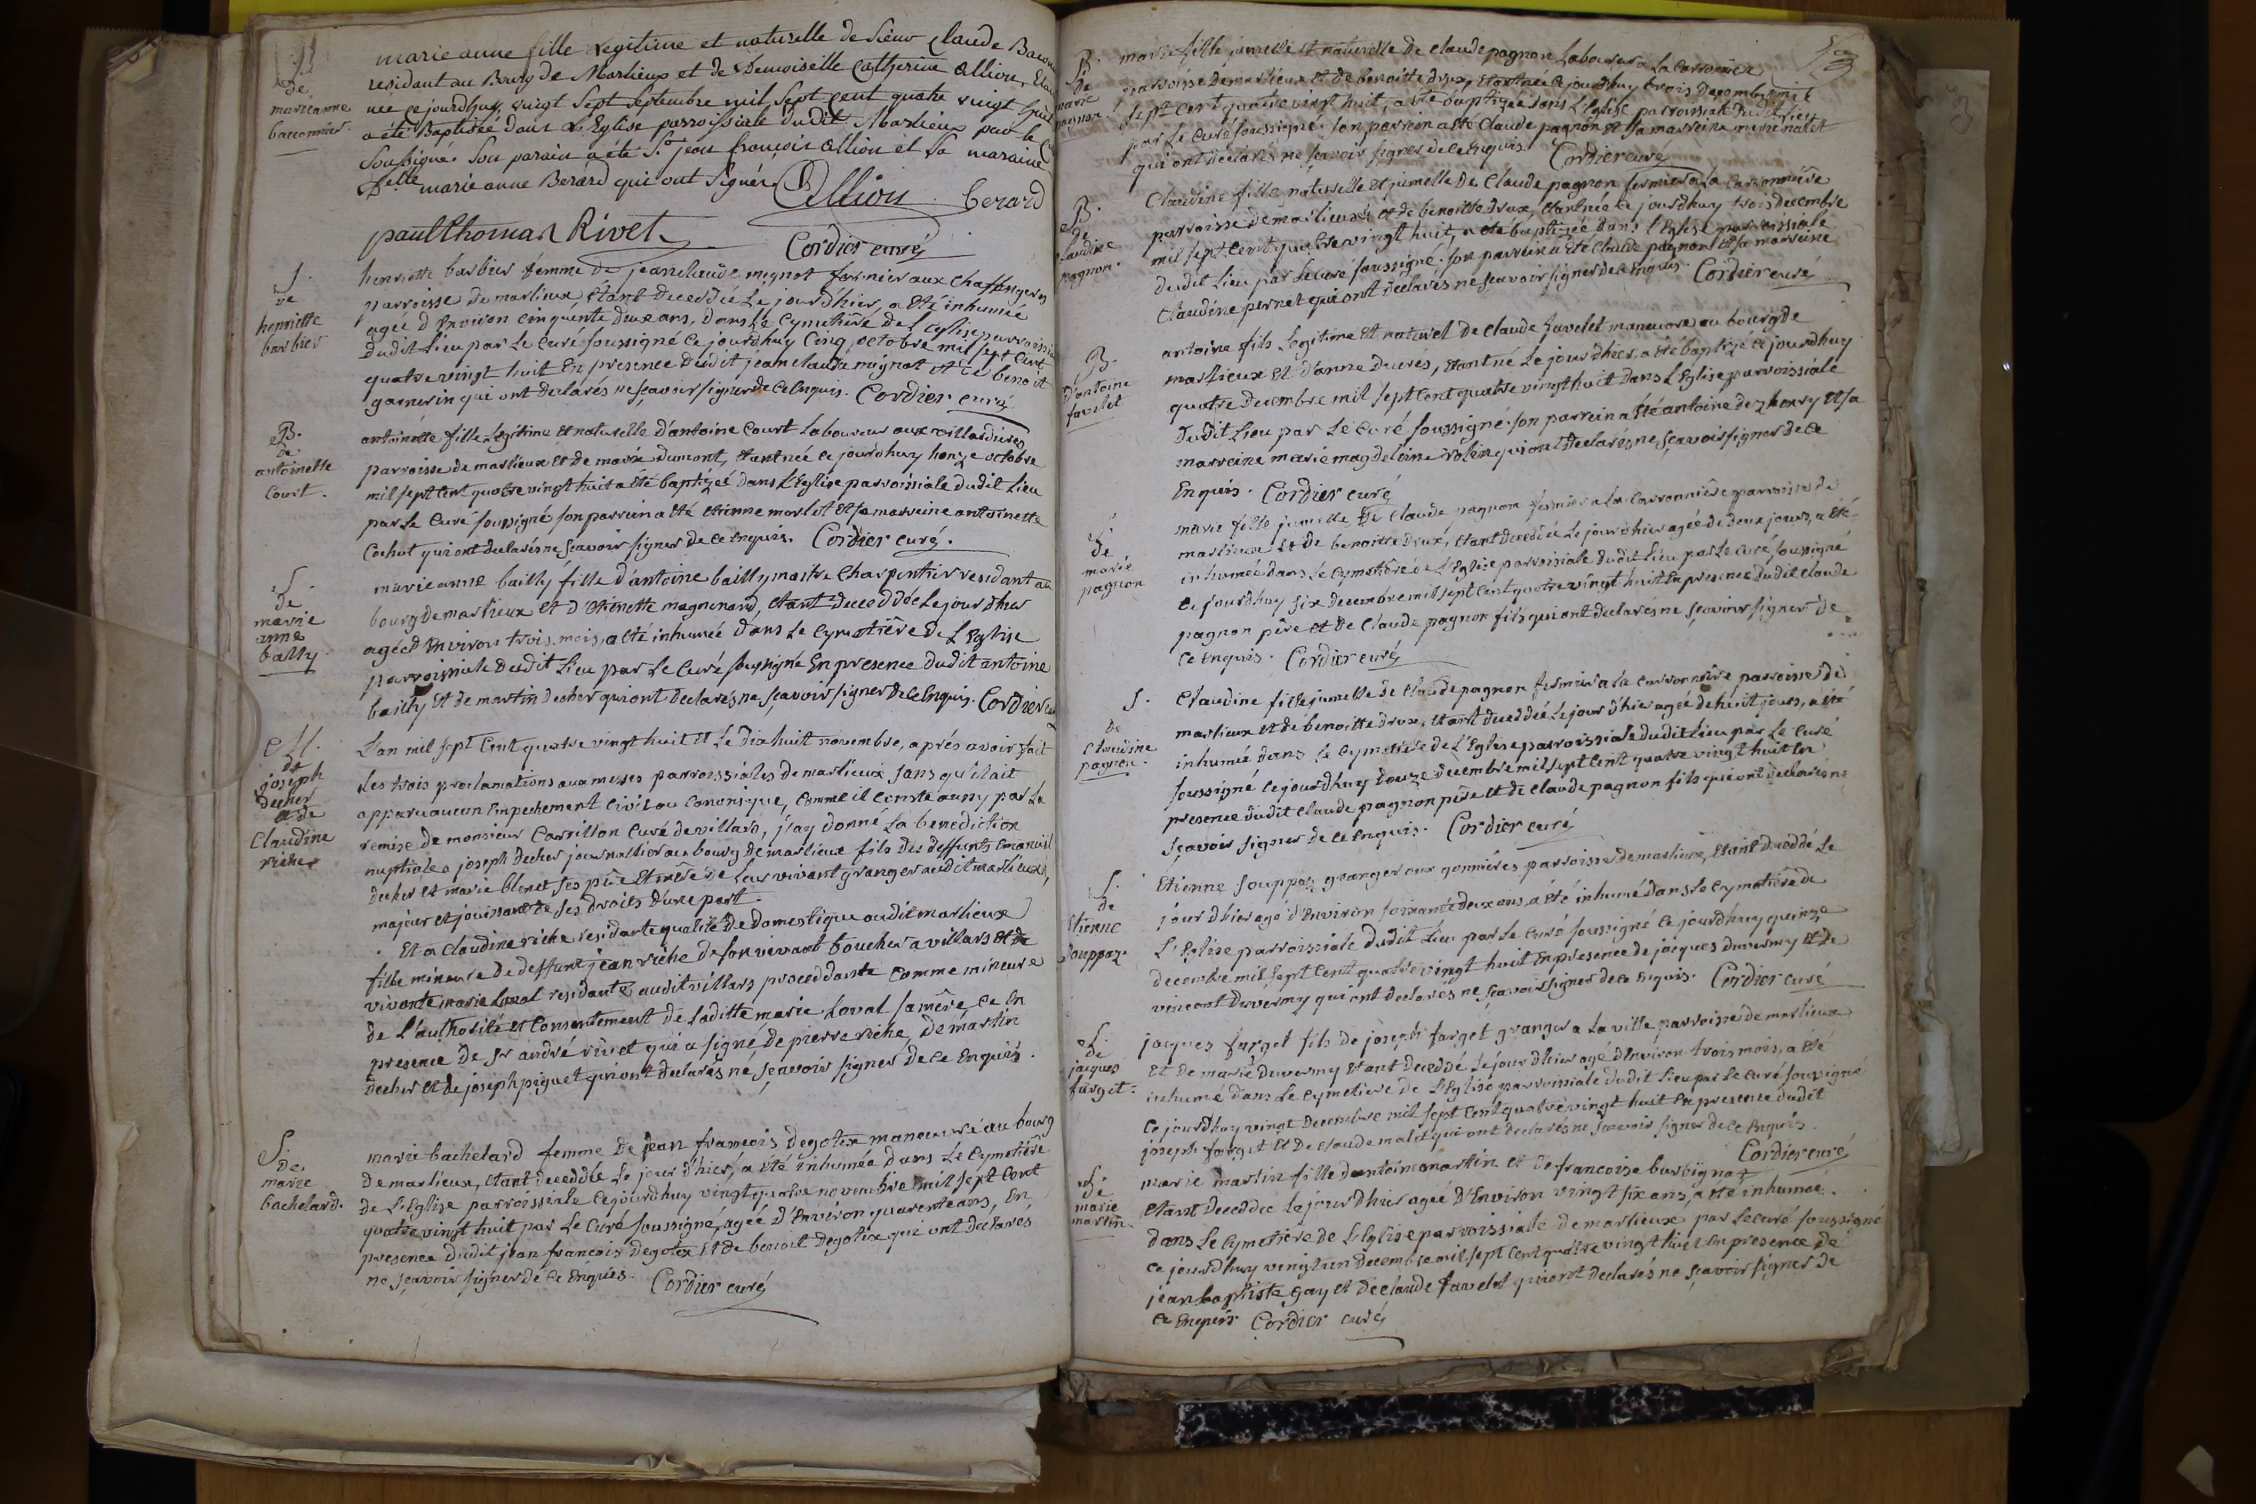 B
de
marieanne
baconnier
marie anne fille legitime et naturelle de sieur Claude
residant au Bourg de Marlieux et de Demoiselle Catherine Allion,
nee cejourdhuy vingt sept septembre mil sept cent quatre vingt huit
a été Baptisée dans L'Eglise parroissiale dudit Marlieux par le
soussigné. son parain a été Sr jean françois allion et sa maraine
Delle marie anne Berard qui ont signés Allion berard
paul thomas Rivet Cordier curé
S.
de
henriette
barbier
henriette barbier femme de jeanclaude mignot fermier aux
parroisse de marlieux, étant deceddée Le jour d'hier, a été inhumée
ageé d'Environ cinquente deux ans, dans Le Cymetière de L'eglise parroissiale
dudit Lieu par Le Curé soussigné ce jourdhuy Cinq octobre mil sept cent
quatre vingt huit En presence dudit jean claude mignot et de benoit
garnerin qui ont declarés ne sçavoir signer de ce Enquis. Cordier curé
B.
de
antoinette
Court.
antoinette fille Legitime et naturelle d'antoine Court Laboureur aux villardieres
parroisse de marlieux et de marie dumont, étant née ce jourdhuy honze octobre
mil sept cent quatre vingt huit a été baptizée dans L'Eglise parroissiale dudit Lieu
par Le Curé soussigné son parrein a été etienne morlot et sa marreine antoinette
Cochut qui ont declarés ne sçavoir signer de ce Enquis. Cordier curé.
S.
de
marie
anne
bailly
marieanne bailly fille d'antoine bailly maitre Charpentier residant au
bourg de marlieux et d'Etiennette magninard, étant deceddée Le jour d'hier
ageé d'Environ trois mois, a été inhumée dans Le Cymetière de L'Eglise
parroissiale dudit Lieu par Le Curé soussigné En presence dudit antoine
bailly et de martin decher qui ont declarés ne sçavoir signer de ce Enquis. Cordier
M.
de
joseph
decher
et de
Claudine
riche
L'an mil sept Cent quatre vingt huit et Le dix huit novembre, après avoir fait
Les trois proclamations aux messes parroissiales de marlieux sans qu'il ait
apparu aucun Empechement Civil ou Canonique, Comme il Conste aussy par La
remise de monsieur Carrillon Curé de villars, j'ay donné La benediction
nuptiale a joseph decher journallier au bourg de marlieux fils des deffunts Emanuel
decher et marie blenet ses père et mère de Leur vivant granger audit marlieux,
majeur et jouissant de ses droits d'une part.
Et a Claudine riche residante qualité de domestique audit marlieux
fille mineure de deffunt jean riche de son vivant boucher a villars et de
vivante marie Laval residante audit villars proceddante Comme mineure
de L'authorité et Consentement de Laditte marie Laval sa mère, Ce En
presence de sr andré rivet qui a signé, de pierre riche, de martin
decher et de joseph piquet qui ont declarés ne sçavoir signer de ce Enquis.
S.
de
marie
bachelard.
marie bachelard femme de jean francois degoler manoeuvre au bourg
de marlieux, étant deceddée Le jour d'hier, a été inhumée dans Le Cymetière
de L'Eglise parroissiale Ce jourdhuy vingt quatre novembre mil sept Cent
quatre vingt huit par Le Curé soussigné, ageé d'Environ quarente ans, En
presence dudit jean francois degoler et de benoit degoler qui ont declarés
ne sçavoir signer de ce Enquis. Cordier curé
B.
de
marie
pagnon
marie fille jumelle et naturelle de claude pagnon Laboureur a La Carronnière
parroisse de marlieux et de benoitte drux, étant née ce jourdhuy trois decembre mil
sept Cent quatre vingt huit, a été baptizée dans L'Eglise parroissiale dudit Lieu
par Le Curé soussigné. son parrein a été Claude pagnon et sa marreine
qui ont declarés ne sçavoir signer de ce Enquis. Cordier curé
B.
de
Claudine
pagnon.
Claudine fille naturelle et jumelle de Claude pagnon fermier a La Carronnière
parroisse de marlieux et de benoitte drux, étant née Ce jourdhuy trois decembre
mil sept Cent quatre vingt huit, a été baptizée dans L'Eglise parroissiale
dudit Lieu par Le Curé soussigné. son parrein a été Claude pagnon et sa marreine
Claudine pernet qui ont declarés ne sçavoir signer de ce Enquis. Cordier curé
B.
d'antoine
favelet
antoine fils Legitime et naturel de Claude favelet manoeuvre au bourg de
marlieux et d'anne ducrés, étant né Le jour d'hier, a été baptizé ce jourdhuy
quatre decembre mil sept Cent quatre vingt huit dans L'Eglise parroissiale
dudit Lieu par Le Curé soussigné. son parrein a été antoine et sa
marreine marie magdeleine rolin qui ont declarés ne sçavoir signer de ce
Enquis. Cordier curé
S.
de
marie
pagnon
marie fille jumelle de Claude pagnon fermier a La Carronnière parroisse de
marlieux et de benoitte drux, étant deceddée Le jour d'hier ageé de deux jours, a été
inhumée dans Le Cymetière de L'Eglise parroissiale dudit Lieu par Le Curé soussigné
Ce jourdhuy six decembre mil sept Cent quatre vingt huit En presence dudit Claude
pagnon père et de Claude pagnon fils qui ont declarés ne sçavoir signer de
Ce Enquis. Cordier curé
S.
de
Claudine
pagnon.
Claudine fille jumelle de Claude pagnon fermier a La Carronnière parroisse de
marlieux et de benoitte drux, étant deceddée Le jour d'hier ageé de huit jours, a été
inhumée dans Le Cymetière de L'Eglise parroissiale dudit Lieu par Le Curé
soussigné Ce jourdhuy douze decembre mil sept Cent quatre vingt huit En
presence dudit Claude pagnon père et de Claude pagnon fils qui ont declarés ne
sçavoir signer de ce Enquis. Cordier curé
S.
de
Etienne
Souppaz.
Etienne Souppaz granger aux gonnières parroisse de marlieux, étant deceddé Le
jour d'hier agé d'Environ soixante deux ans, a été inhumé dans Le Cymetière de
L'Eglise parroissiale dudit Lieu par Le Curé soussigné Ce jourdhuy quinze
decembre mil sept Cent quatre vingt huit En presence de jacques duvermy et de
vincent duvermy qui ont declarés ne sçavoir signer de ce Enquis. Cordier curé
S.
de
jacques
farget.
jacques farget fils de joseph farget granger a La ville parroisse de marlieux
et de marie duvermy étant deceddé Le jour d'hier agé d'Environ trois mois, a été
inhumé dans Le Cymetière de L'Eglise parroissiale dudit Lieu par Le Curé soussigné
Ce jourdhuy vingt decembre mil sept Cent quatre vingt huit En presence dudit
joseph farget et de Claude malet qui ont declarés ne sçavoir signer de ce Enquis.
Cordier curé
S.
de
marie
martin
marie martin fille d'antoine martin et de francoise
étant deceddée Le jour d'hier ageé d'Environ vingt six ans, a été inhumée
dans Le Cymetière de L'Eglise parroissiale de marlieux par Le Curé soussigné
Ce jourdhuy vingt un decembre mil sept Cent quatre vingt huit En presence de
jean baptiste gay et de Claude favelet qui ont declarés ne sçavoir signer de
Ce Enquis Cordier curé